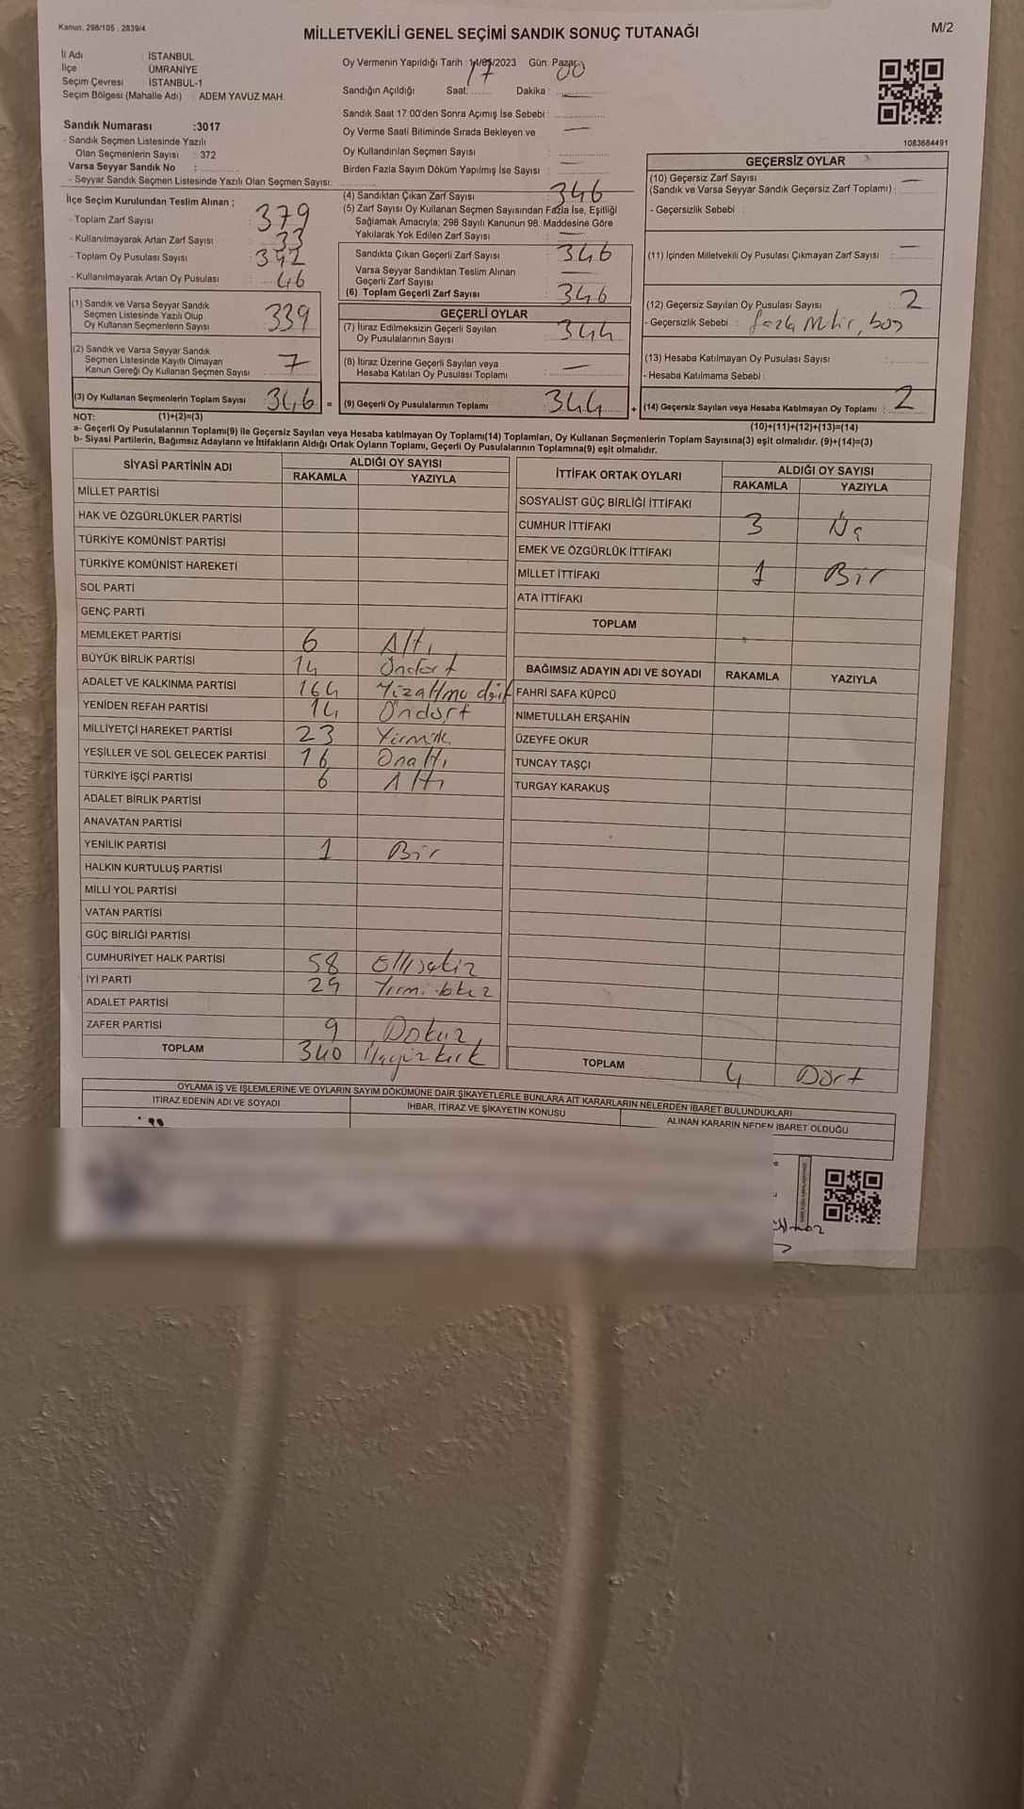 Kanun: 298/105 , 2839/4
MİLLETVEKİLİ GENEL SEÇİMİ SANDIK SONUÇ TUTANAĞI
M/2
İl Adı : İSTANBUL
İlçe : ÜMRANİYE
Seçim Çevresi : İSTANBUL-1
Seçim Bölgesi (Mahalle Adı) : ADEM YAVUZ MAH.
Sandık Numarası :3017
- Sandık Seçmen Listesinde Yazılı
Olan Seçmenlerin Sayısı : 372
Varsa Seyyar Sandık No :
- Seyyar Sandık Seçmen Listesinde Yazılı Olan Seçmen Sayısı:
Oy Vermenin Yapıldığı Tarih : 14/05/2023 Gün: Pazar
Sandığın Açıldığı Saat: 17 Dakika : 00
Sandık Saat 17:00'den Sonra Açımış İse Sebebi :
Oy Verme Saati Bitiminde Sırada Bekleyen ve —
Oy Kullandırılan Seçmen Sayısı
Birden Fazla Sayım Döküm Yapılmış İse Sayısı : —
1083684491
İlçe Seçim Kurulundan Teslim Alınan ;
- Toplam Zarf Sayısı : 379
- Kullanılmayarak Artan Zarf Sayısı : 33
- Toplam Oy Pusulası Sayısı : 392
- Kullanılmayarak Artan Oy Pusulası : 46
(1) Sandık ve Varsa Seyyar Sandık
Seçmen Listesinde Yazılı Olup
Oy Kullanan Seçmenlerin Sayısı 339
(2) Sandık ve Varsa Seyyar Sandık
Seçmen Listesinde Kayıtlı Olmayan
Kanun Gereği Oy Kullanan Seçmen Sayısı 7
(3) Oy Kullanan Seçmenlerin Toplam Sayısı 346 =
(4) Sandıktan Çıkan Zarf Sayısı 346
(5) Zarf Sayısı Oy Kullanan Seçmen Sayısından Fazla İse, Eşitliği
Sağlamak Amacıyla; 298 Sayılı Kanunun 98. Maddesine Göre
Yakılarak Yok Edilen Zarf Sayısı —
Sandıkta Çıkan Geçerli Zarf Sayısı 346
Varsa Seyyar Sandıktan Teslim Alınan
Geçerli Zarf Sayısı —
(6) Toplam Geçerli Zarf Sayısı 346
GEÇERLİ OYLAR
(7) İtiraz Edilmeksizin Geçerli Sayılan
Oy Pusulalarının Sayısı 344
(8) İtiraz Üzerine Geçerli Sayılan veya
Hesaba Katılan Oy Pusulası Toplamı —
(9) Geçerli Oy Pusulalarının Toplamı 344 +
GEÇERSİZ OYLAR
(10) Geçersiz Zarf Sayısı
(Sandık ve Varsa Seyyar Sandık Geçersiz Zarf Toplamı) : —
- Geçersizlik Sebebi :
(11) İçinden Milletvekili Oy Pusulası Çıkmayan Zarf Sayısı : —
(12) Geçersiz Sayılan Oy Pusulası Sayısı : 2
- Geçersizlik Sebebi :
(13) Hesaba Katılmayan Oy Pusulası Sayısı :
- Hesaba Katılmama Sebebi :
(14) Geçersiz Sayılan veya Hesaba Katılmayan Oy Toplamı : 2
NOT: (1)+(2)=(3) (10)+(11)+(12)+(13)=(14)
a- Geçerli Oy Pusulalarının Toplamı(9) ile Geçersiz Sayılan veya Hesaba katılmayan Oy Toplamı(14) Toplamları, Oy Kullanan Seçmenlerin Toplam Sayısına(3) eşit olmalıdır. (9)+(14)=(3)
b- Siyasi Partilerin, Bağımsız Adayların ve İttifakların Aldığı Ortak Oyların Toplamı, Geçerli Oy Pusulalarının Toplamına(9) eşit olmalıdır.
SİYASİ PARTİNİN ADI ALDIĞI OY SAYISI
RAKAMLA YAZIYLA
MİLLET PARTİSİ
HAK VE ÖZGÜRLÜKLER PARTİSİ
TÜRKİYE KOMÜNİST PARTİSİ
TÜRKİYE KOMÜNİST HAREKETİ
SOL PARTİ
GENÇ PARTİ
MEMLEKET PARTİSİ 6 Altı
BÜYÜK BİRLİK PARTİSİ 14 Öndört
ADALET VE KALKINMA PARTİSİ 164
YENİDEN REFAH PARTİSİ 14 Öndört
MİLLİYETÇİ HAREKET PARTİSİ 23
YEŞİLLER VE SOL GELECEK PARTİSİ 16 Onaltı
TÜRKİYE İŞÇİ PARTİSİ 6 Altı
ADALET BİRLİK PARTİSİ
ANAVATAN PARTİSİ
YENİLİK PARTİSİ 1 Bir
HALKIN KURTULUŞ PARTİSİ
MİLLİ YOL PARTİSİ
VATAN PARTİSİ
GÜÇ BİRLİĞİ PARTİSİ
CUMHURİYET HALK PARTİSİ 58 Ellisekiz
İYİ PARTİ 29 Yirmi dokuz
ADALET PARTİSİ
ZAFER PARTİSİ 9 Dokuz
TOPLAM 340 Üçyüzkırk
İTTİFAK ORTAK OYLARI ALDIĞI OY SAYISI
RAKAMLA YAZIYLA
SOSYALİST GÜÇ BİRLİĞİ İTTİFAKI
CUMHUR İTTİFAKI 3 Üç
EMEK VE ÖZGÜRLÜK İTTİFAKI
MİLLET İTTİFAKI 1 Bir
ATA İTTİFAKI
TOPLAM
BAĞIMSIZ ADAYIN ADI VE SOYADI RAKAMLA YAZIYLA
FAHRİ SAFA KÜPCÜ
NİMETULLAH ERŞAHİN
ÜZEYFE OKUR
TUNCAY TAŞÇI
TURGAY KARAKUŞ
TOPLAM 4 Dört
OYLAMA İŞ VE İŞLEMLERİNE VE OYLARIN SAYIM DÖKÜMÜNE DAİR ŞİKAYETLERLE BUNLARA AİT KARARLARIN NELERDEN İBARET BULUNDUKLARI
İTİRAZ EDENİN ADI VE SOYADI İHBAR, İTİRAZ VE ŞİKAYETİN KONUSU ALINAN KARARIN NEDEN İBARET OLDUĞU